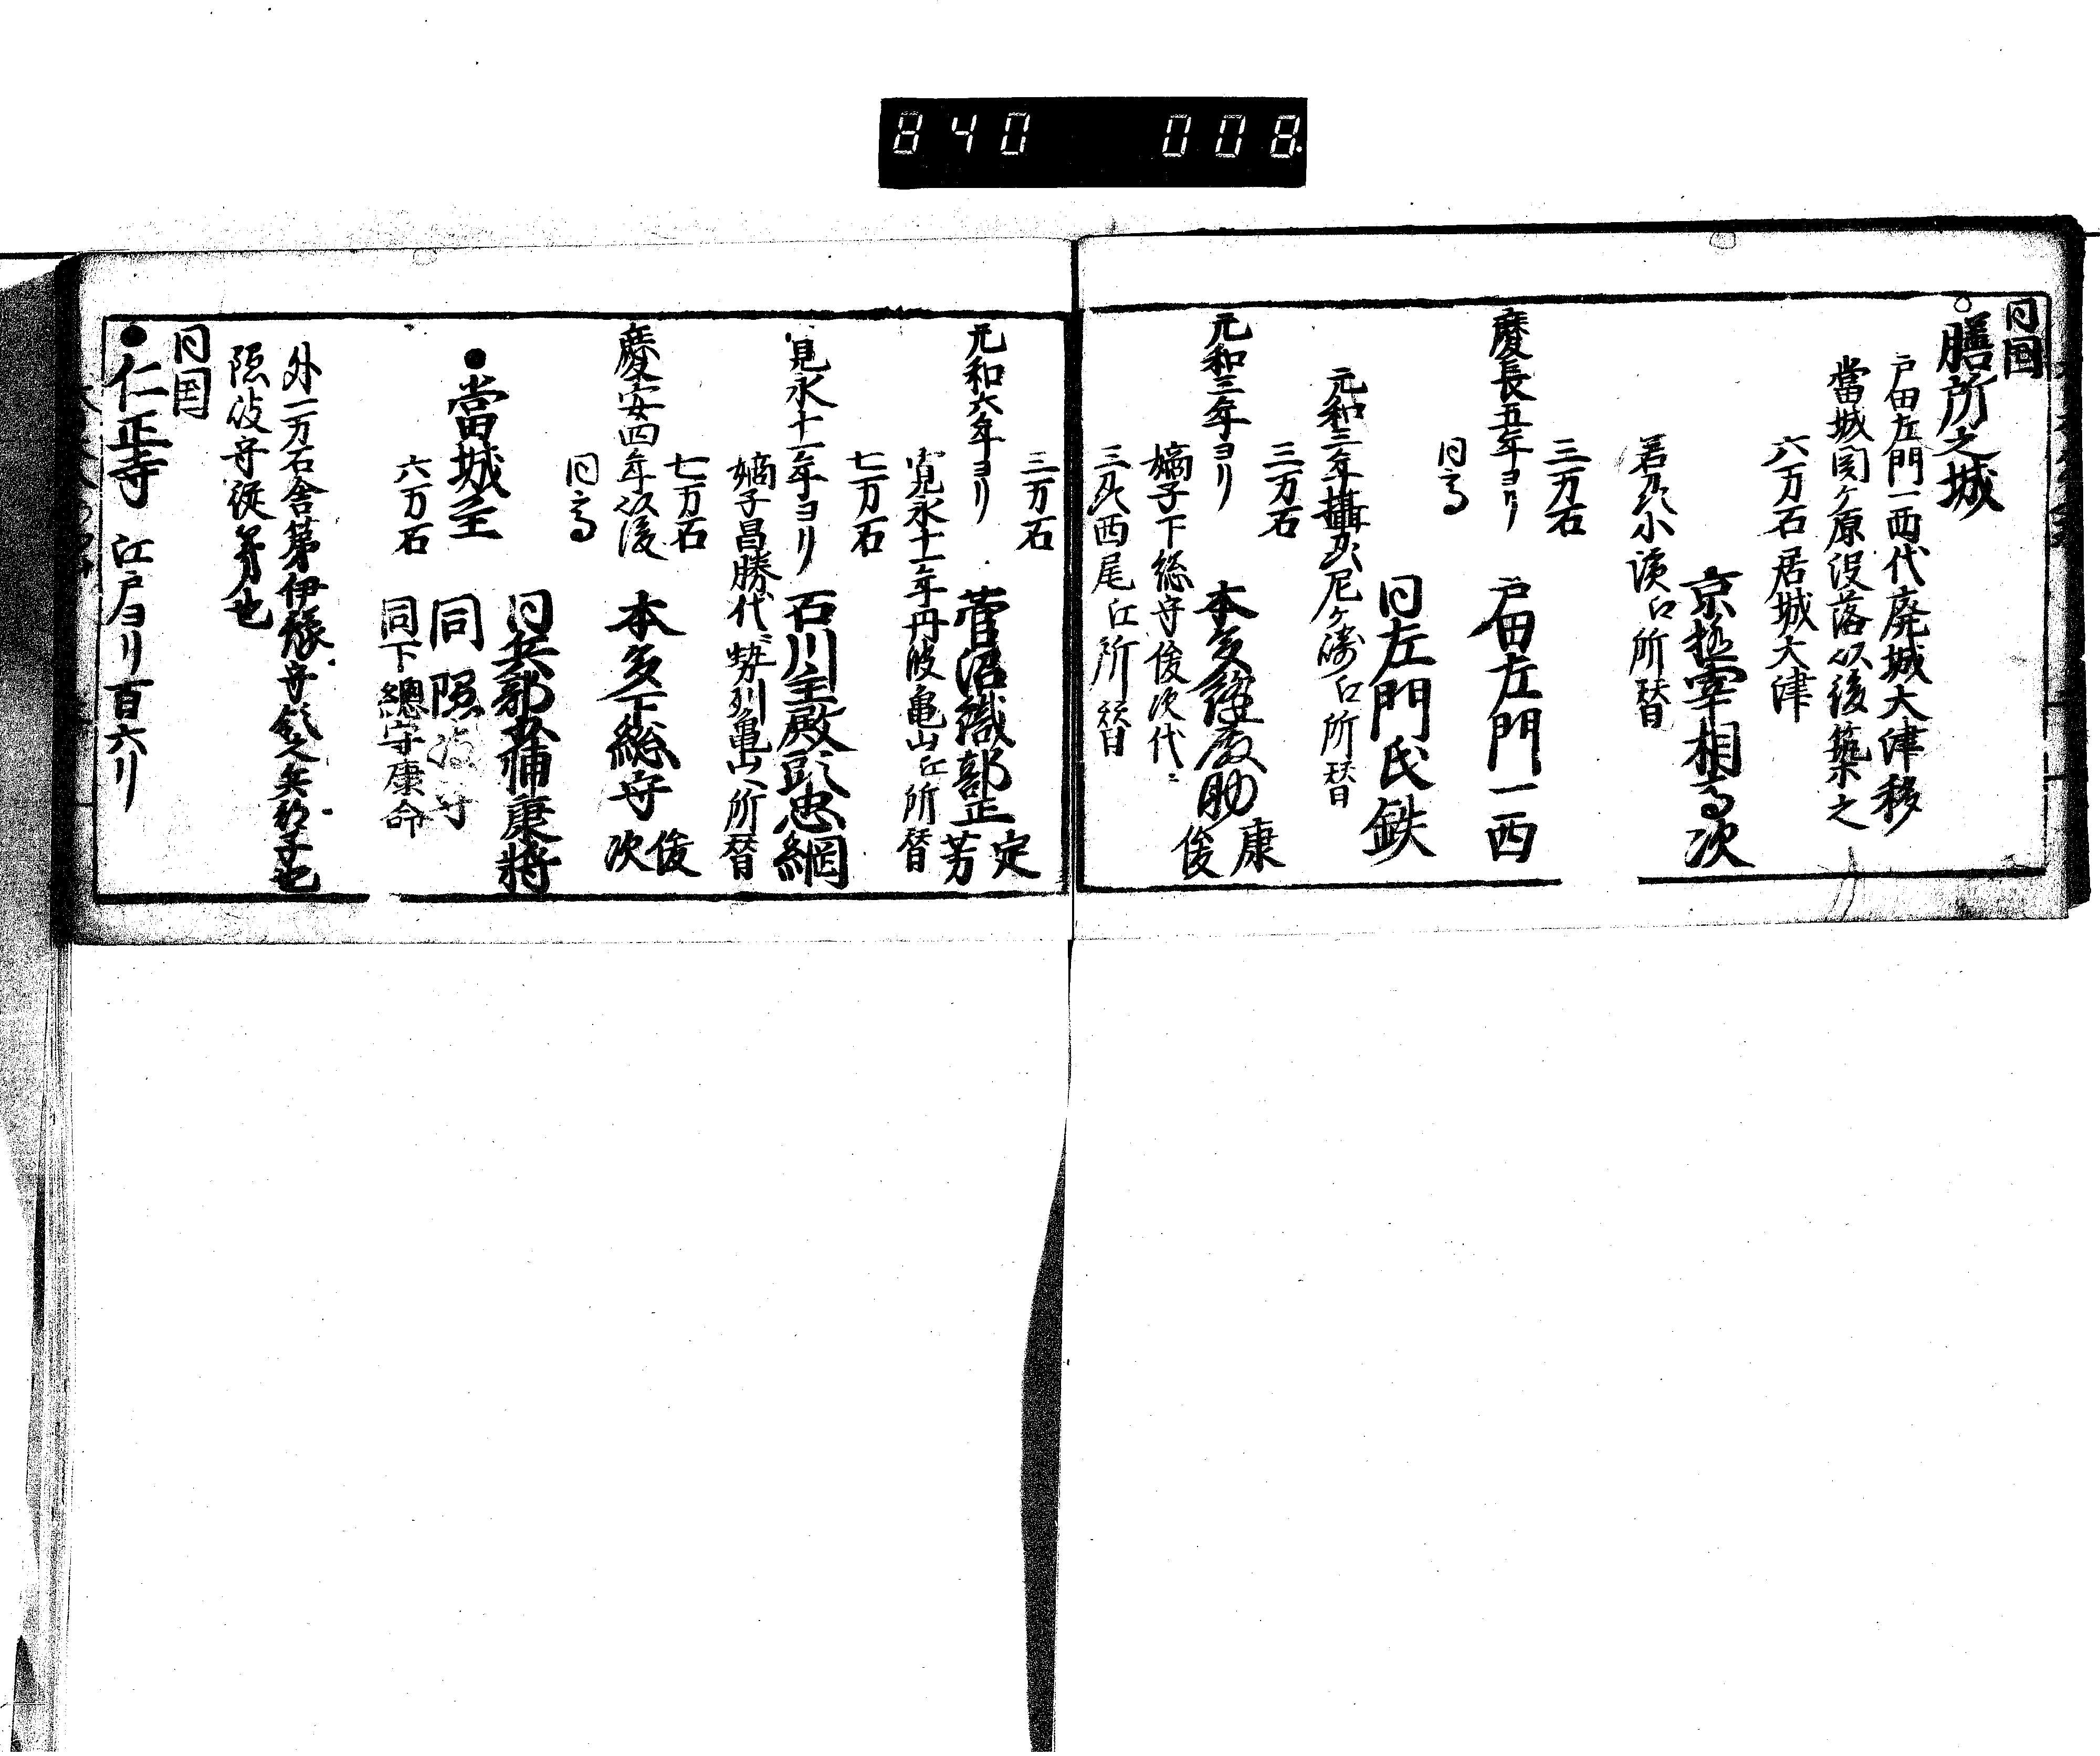 840 008
同国
○膳所之城
戸田左門一西代廃城大津移
當城関ケ原没落以後築之
六万石 居城大津
京極宰相高次
若州小濱江所替
三万石
慶長五年ヨリ 戸田左門一西
同高
同左門氏鉄
元和三年攝州尼ケ崎江所替
三万石
元和三年ヨリ 本多縫殿助 康俊
嫡子下総守俊次代ニ
三州西尾江所替
三万石
元和六年ヨリ 菅沼織部正 定芳
寛永十一年丹波亀山江所替
七万石
寛永十一年ヨリ 石川主殿頭忠綱
嫡子昌勝代 勢州亀山へ所替
七万石
慶安四年以後 本多下総守 俊次
同高
同兵部少輔康将
●當城主
同 隠岐守
六万石 同下總守康命
外一万石舎弟伊豫守
隠岐守従弟也
同国
●仁正寺 江戸ヨリ百六リ